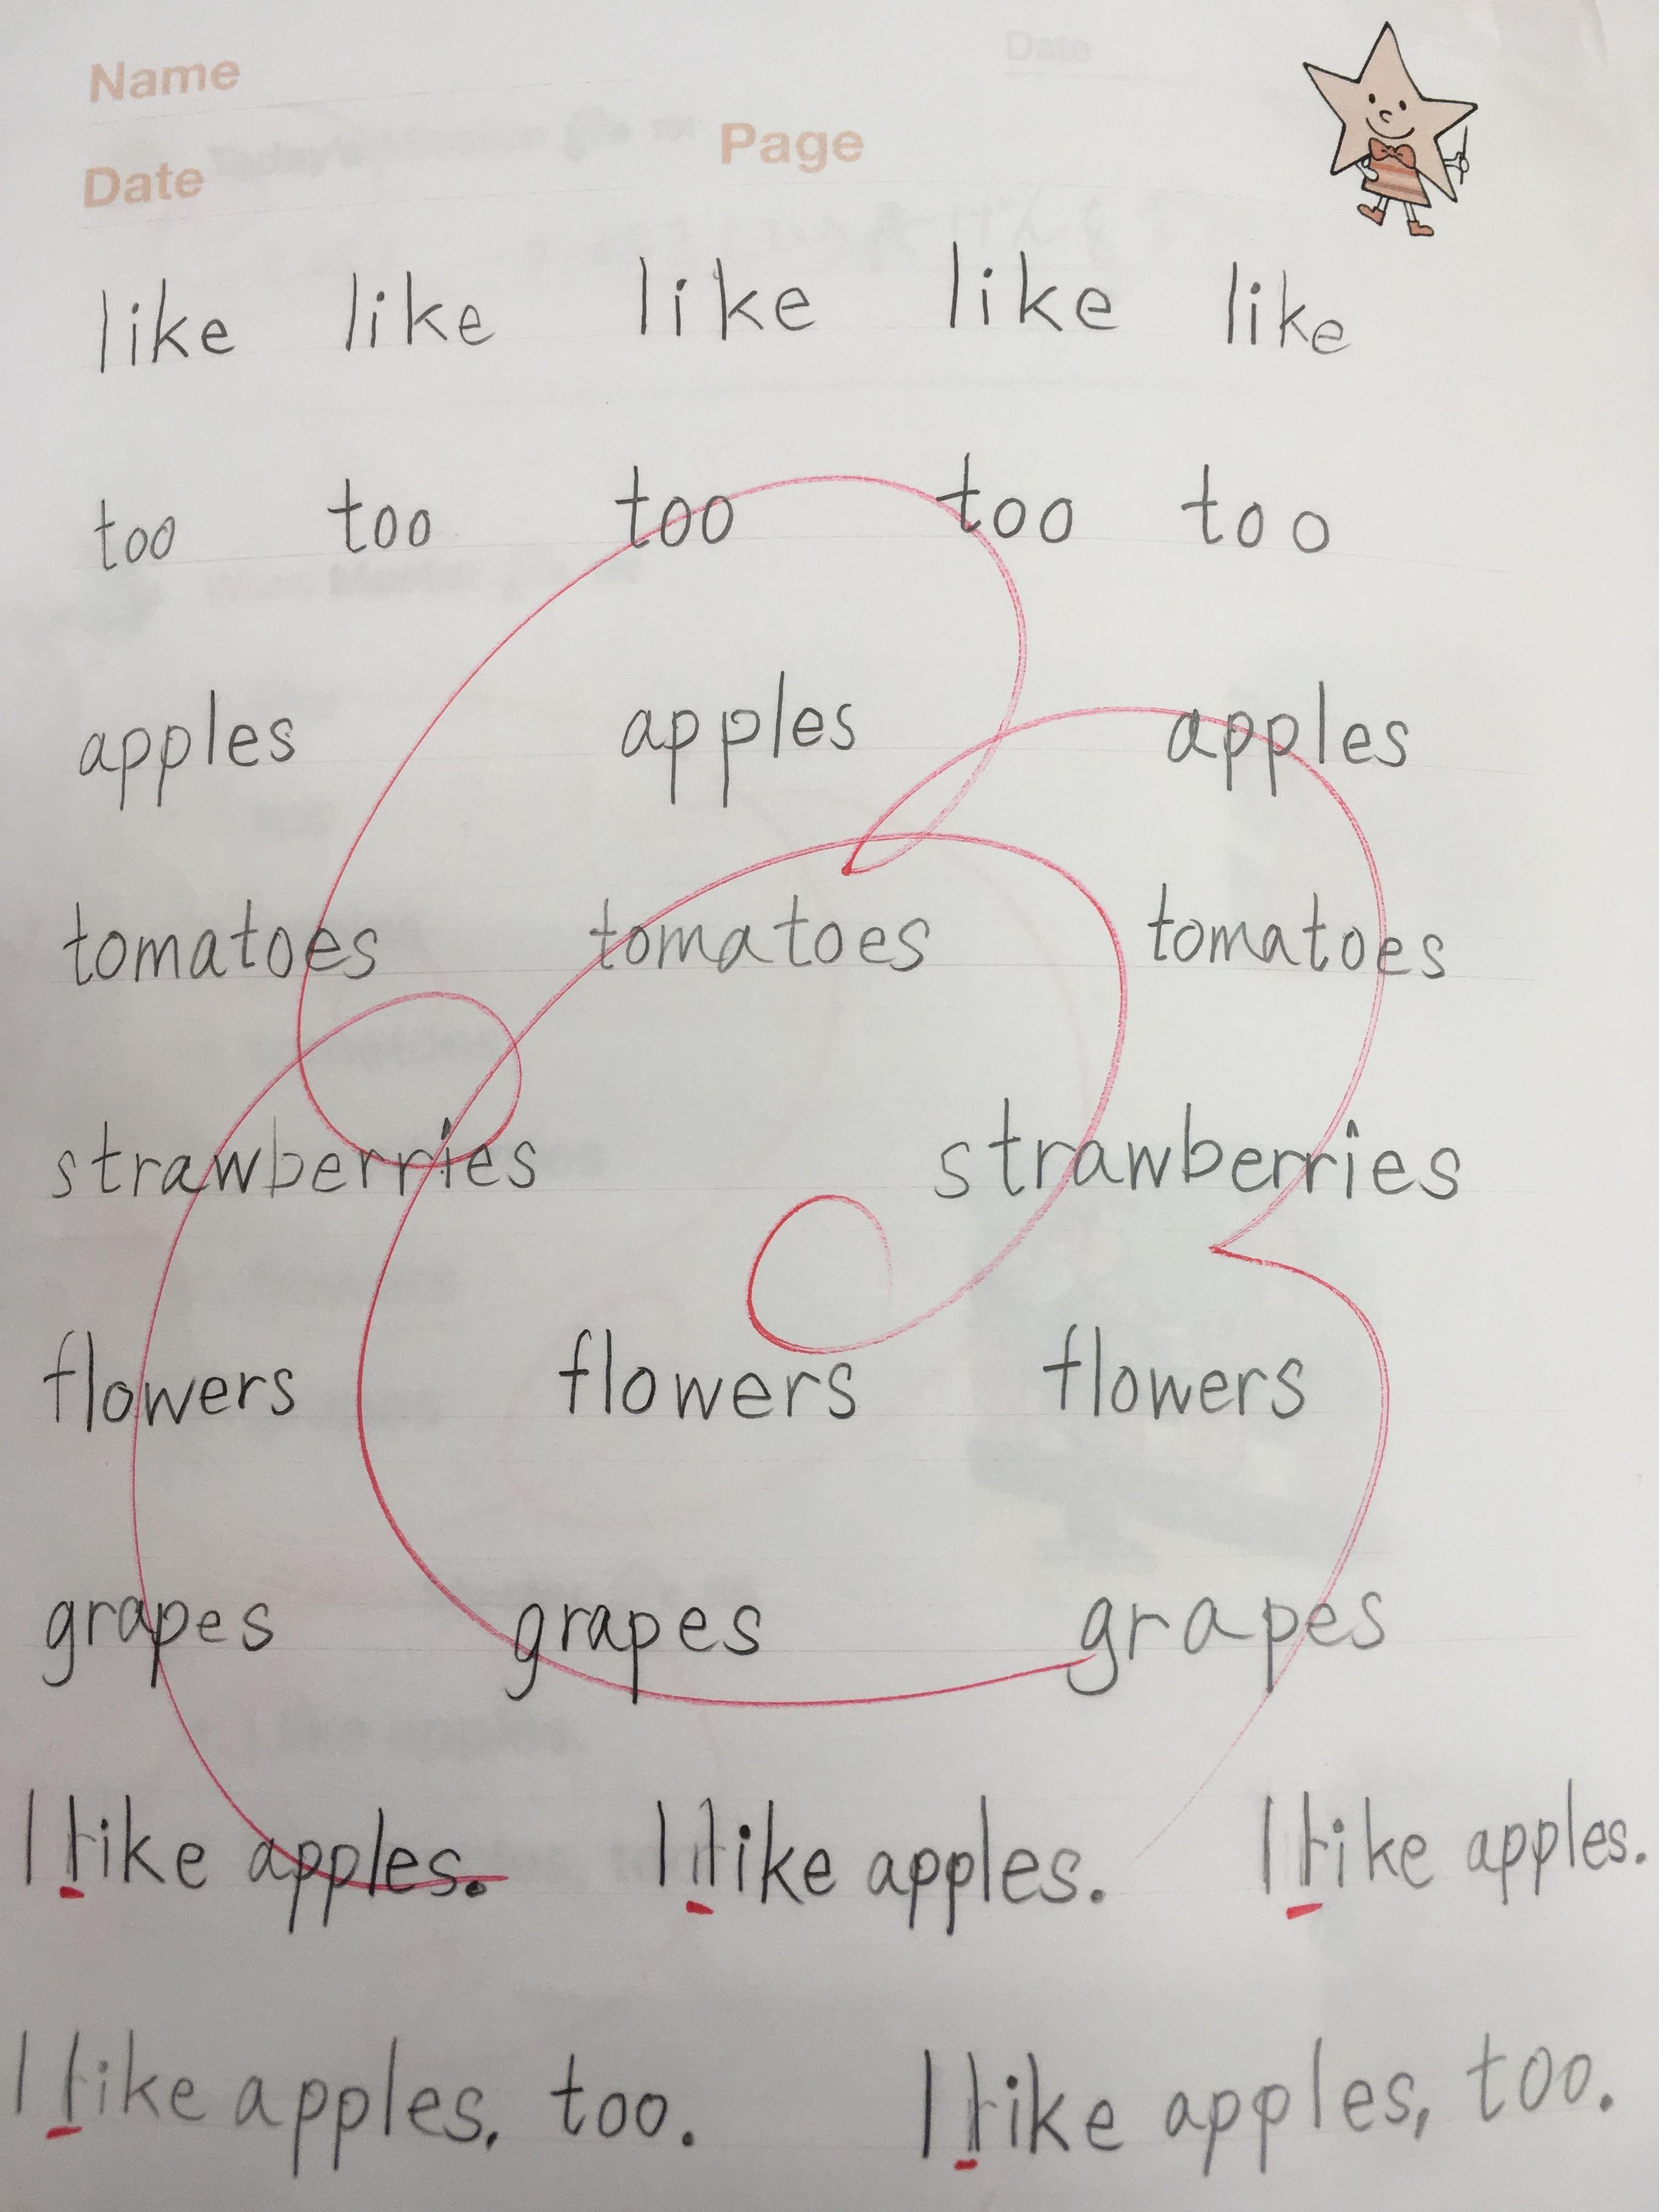 Name
Date
Date Page
like like like like like
too too too too too
apples apples apples
tomatoes tomatoes tomatoes
strawberries strawberries
flowers flowers flowers
grapes grapes grapes
I like apples. I like apples. I like apples.
I like apples, too. I like apples, too.